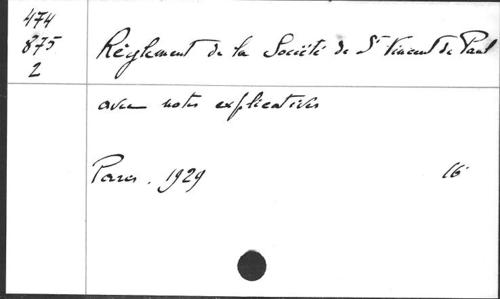 474
875
2
Règlement de la Société de St Vincent de Paul
avec notes explicatives
Paris. 1929 16°